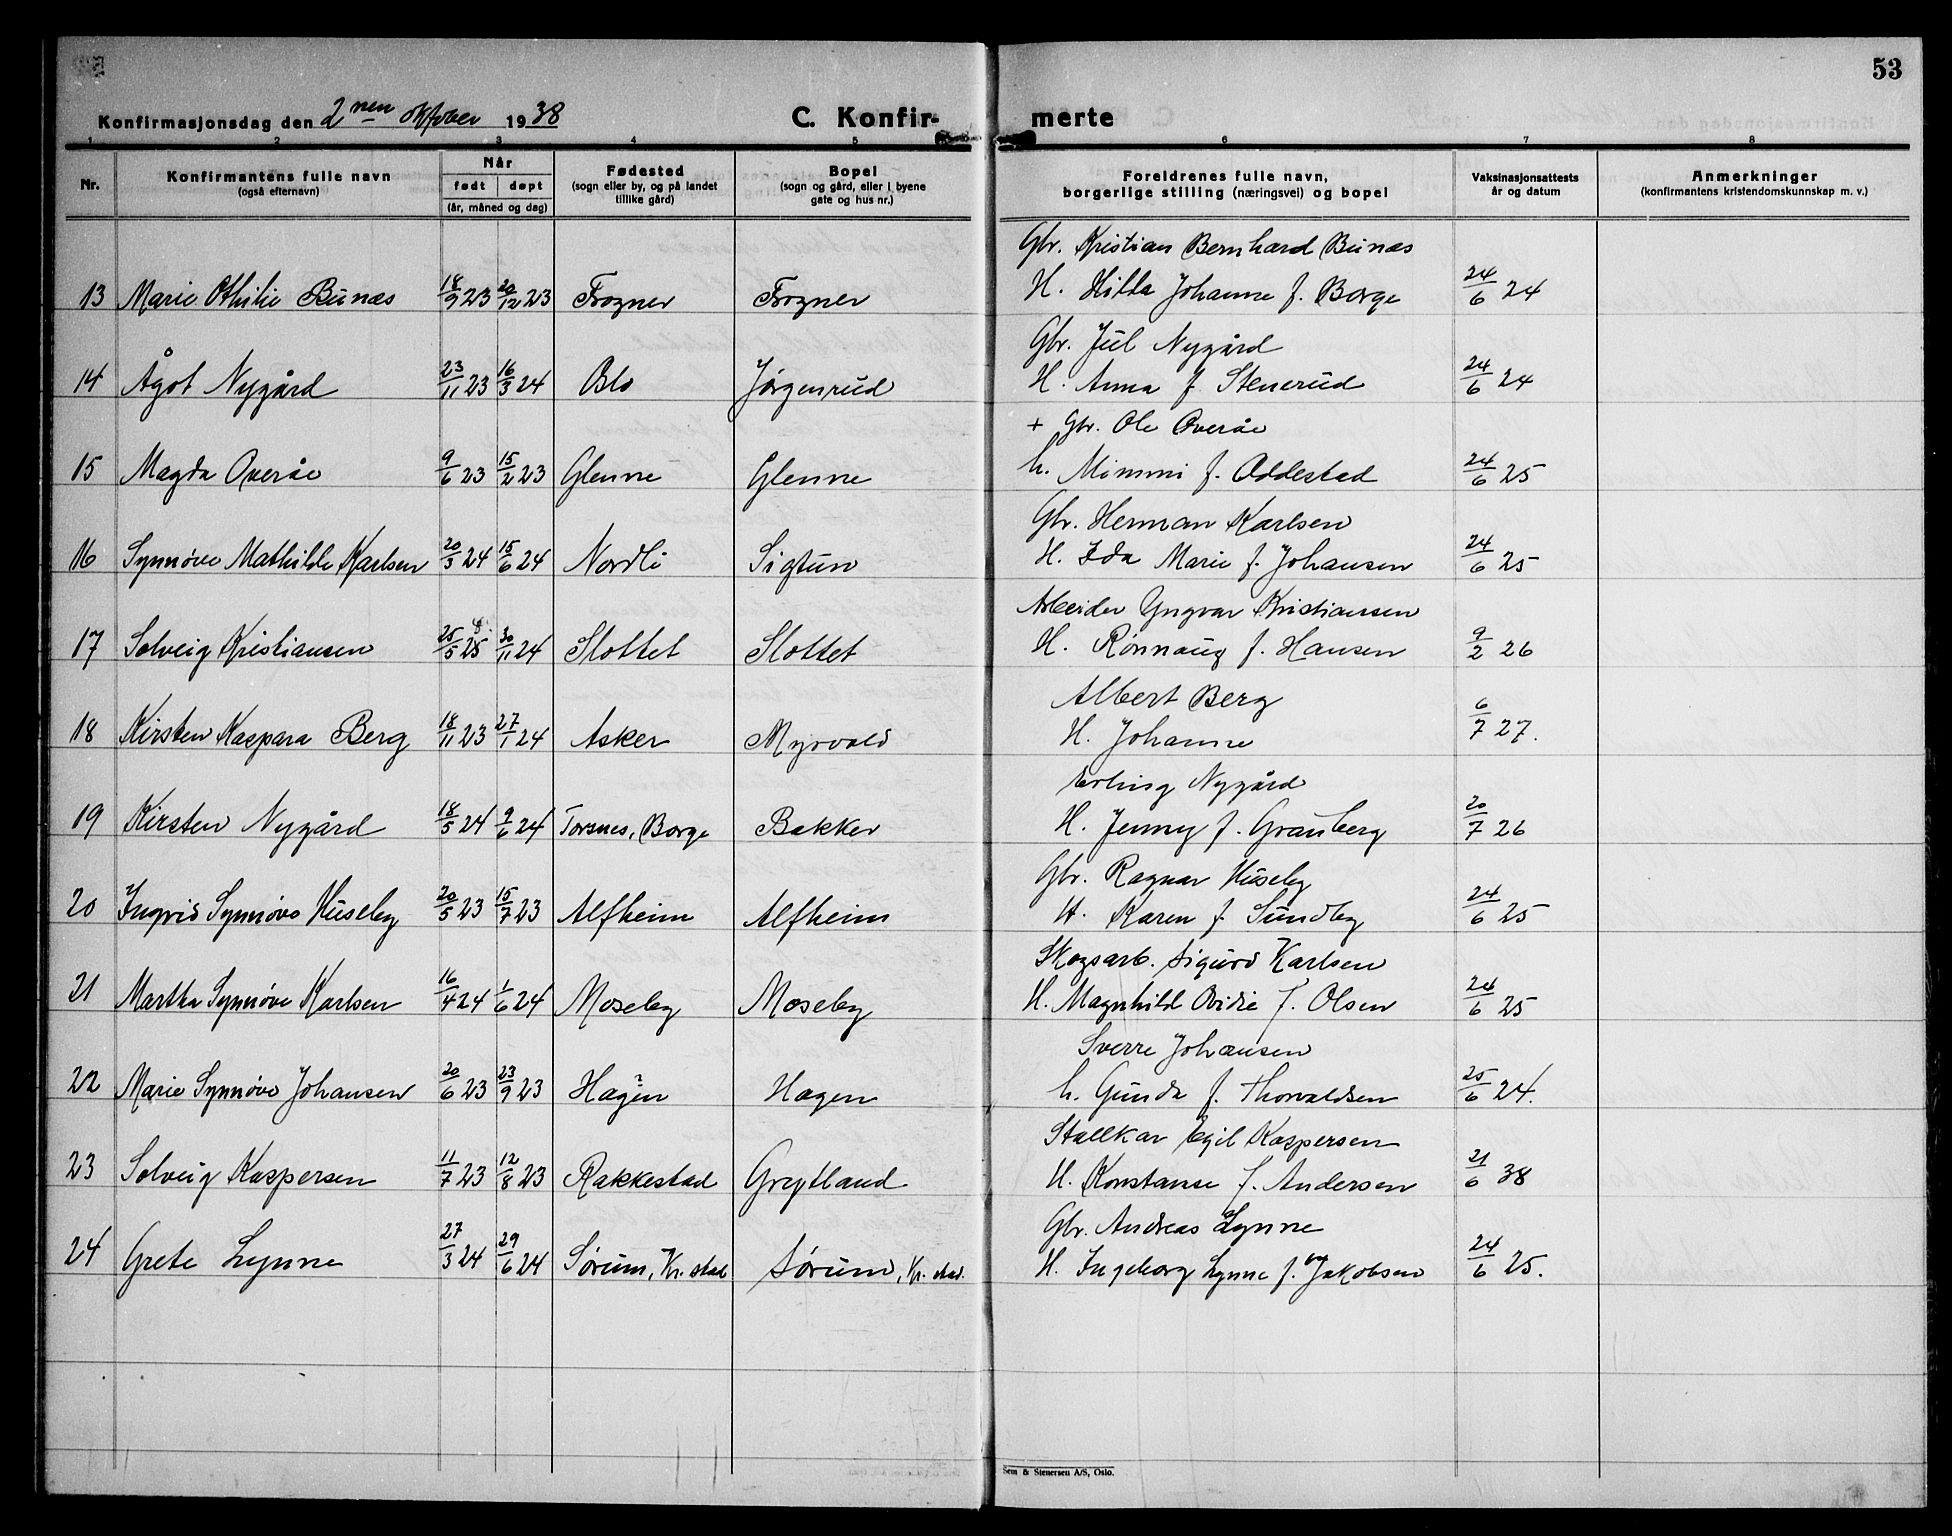 53
Konfirmasjonsdag den 2nen oktober 1938
C. Konfir-
merte
1 2 3 4 5 6 7 8
Nr.
Konfirmantens fulle navn
(også efternavn)
Når
født døpt
(år, måned og dag)
Fødested
(sogn eller by, og på landet
tillike gård)
Bopel
(sogn og gård, eller i byene
gate og hus nr.)
Foreldrenes fulle navn,
borgerlige stilling (næringsvei) og bopel
Vaksinasjonsattests
år og datum
Anmerkninger
(konfirmantens kristendomskunnskap m. v.)
Gbr. Kristian Bernhard Bunæs
13 Marie Othilie Bunæs 18/9 23 20/12 23 Frogner Frogner H. Hilda Johanne f. Borge 24/6 24
Gbr. Jul Nygård
14 Ågot Nygård 23/11 23 16/3 24 Blo Jørgenrud H. Anna f. Stenerud 24/6 24
+ Gbr. Ole Overåe
15 Magda Overåe 9/6 23 15/2 23 Glenne Glenne h. Mimmi f. Oddestad 24/6 25
Gbr. Herman Karlsen
16 Synnøve Mathilde Karlsen 20/3 24 15/6 24 Nordli Sigtun H. Ida Marie f. Johansen 24/6 25
Arbeider Yngvar Kristiansen
17 Solveig Kristiansen 25/5 25 30/11 24 Slottet Slottet H. Rønnaug f. Hansen 9/2 26
Albert Berg
18 Kirsten Kaspara Berg 18/11 23 27/1 24 Asker Myrvold H. Johanne 6/7 27.
Erling Nygård
19 Kirsten Nygård 18/5 24 9/6 24 Torsnes, Borge Bakker H. Jenny f. Granberg 20/7 26
Gbr. Ragnar Huseby
20 Ingrid Synnøve Huseby 20/5 23 15/7 23 Alfheim Alfheim H. Karen f. Sundby 24/6 25
Skogsarb. Sigurd Karlsen
21 Martha Synnøve Karlsen 16/4 24 1/6 24 Moseby Moseby H. Magnhild Ovidie f. Olsen 24/6 25
Sverre Johansen
22 Marie Synnøve Johansen 20/6 23 23/9 23 Hagen Hagen h. Gunda f. Thorvaldsen 25/6 24.
Stallkar Egil Kaspersen
23 Solveig Kaspersen 11/7 23 12/8 23 Rakkestad Grytland H. Konstanse f. Andersen 21/6 38
Gbr. Andreas Lynne
24 Grete Lynne 27/3 24 29/6 24 Sørum, Kr. stad Sørum, Kr. stad. H. Ingeborg Lynne f. Jakobsen 24/6 25.
Sem & Stenersen A/S, Oslo.